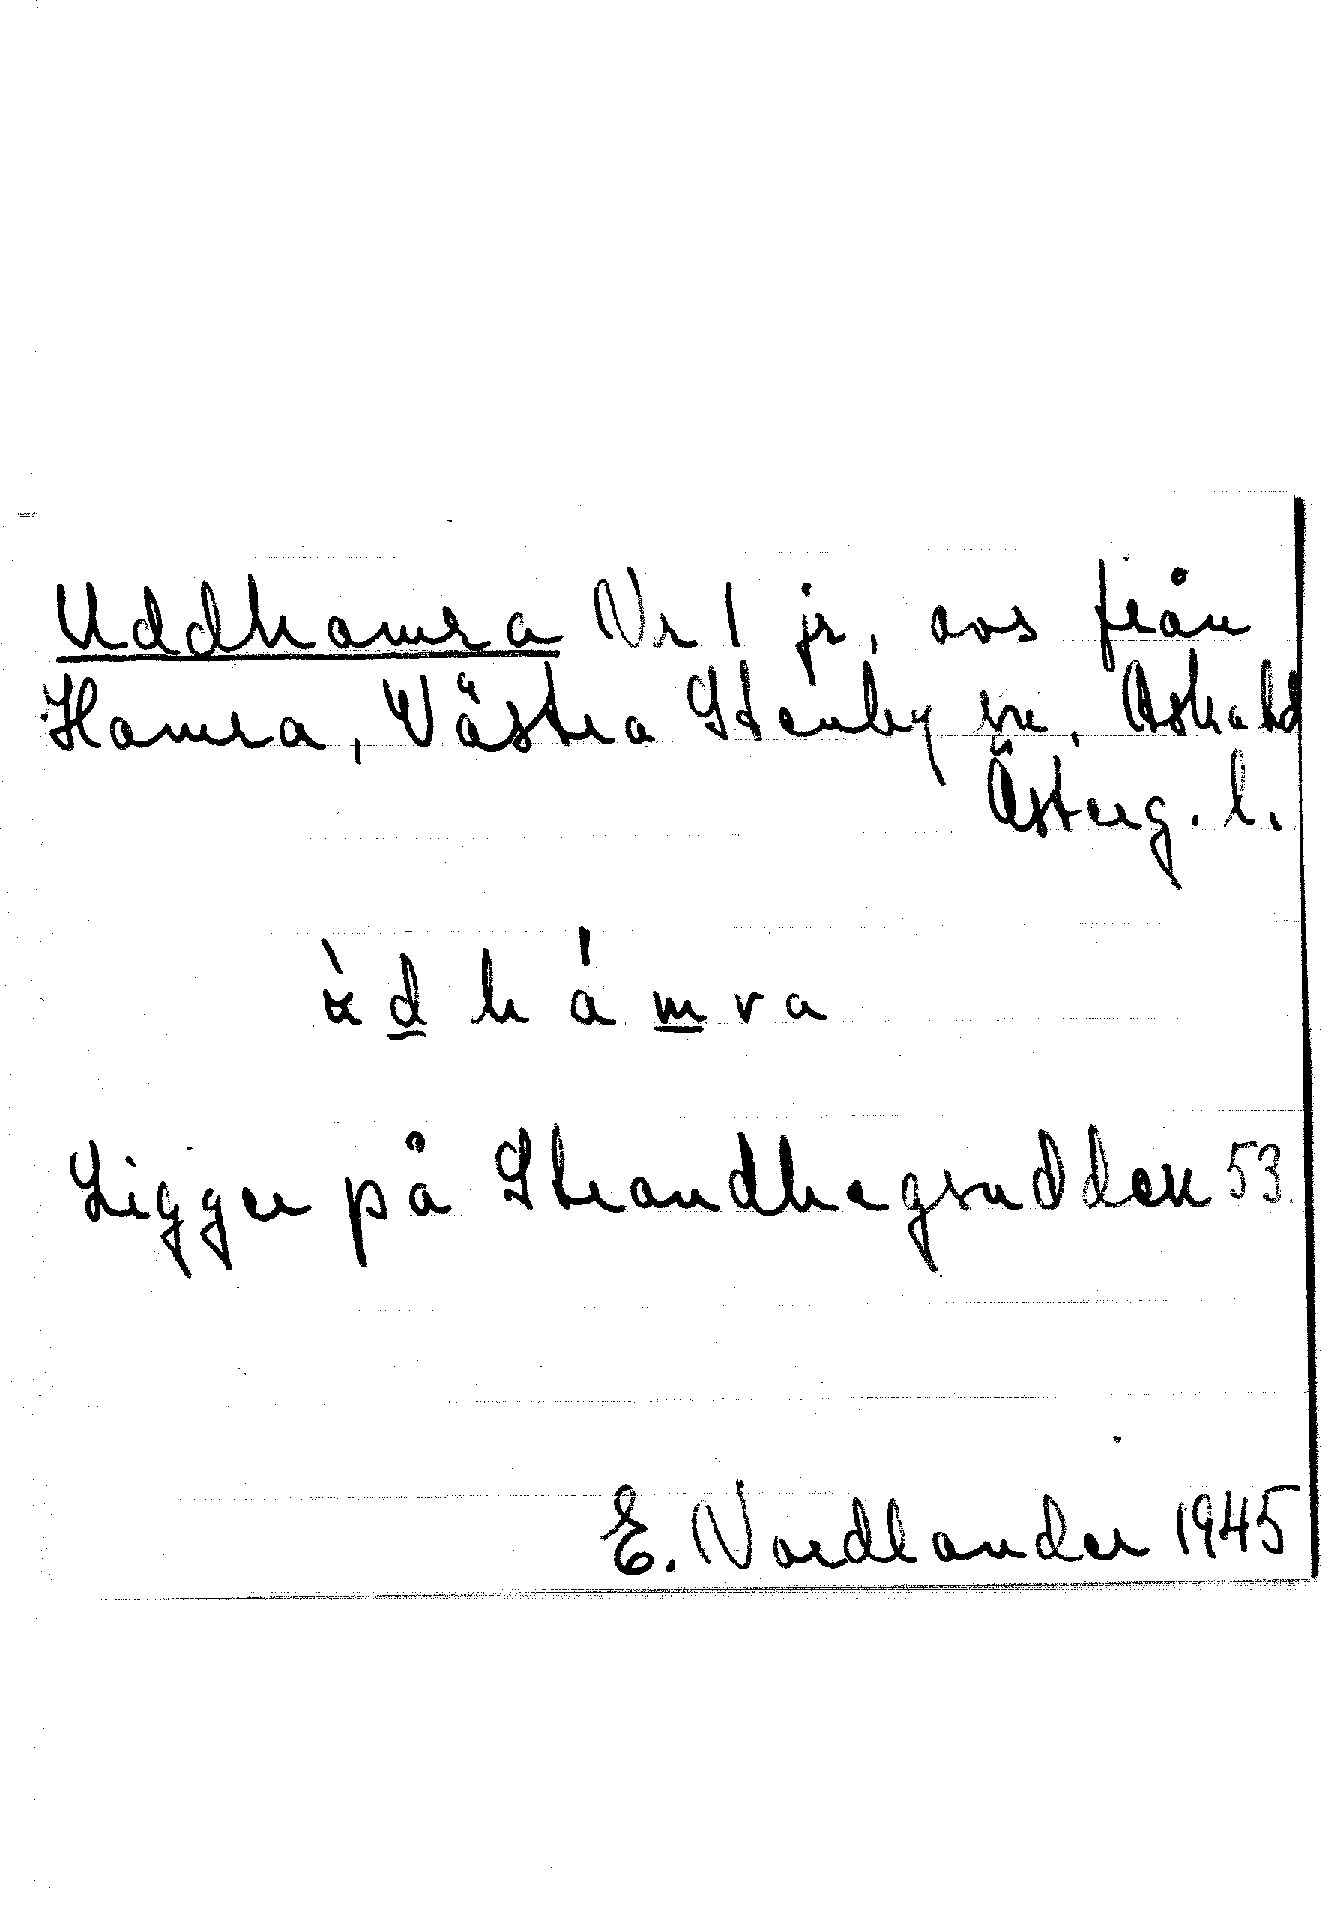 Uddhamra Nr 1 jr, avs från
Hamra, Västra Stenby sn, Askabd
Österg. l.
ὰd hámra
Ligger på Strandhagsudden 53.
E. Nordlander 1945